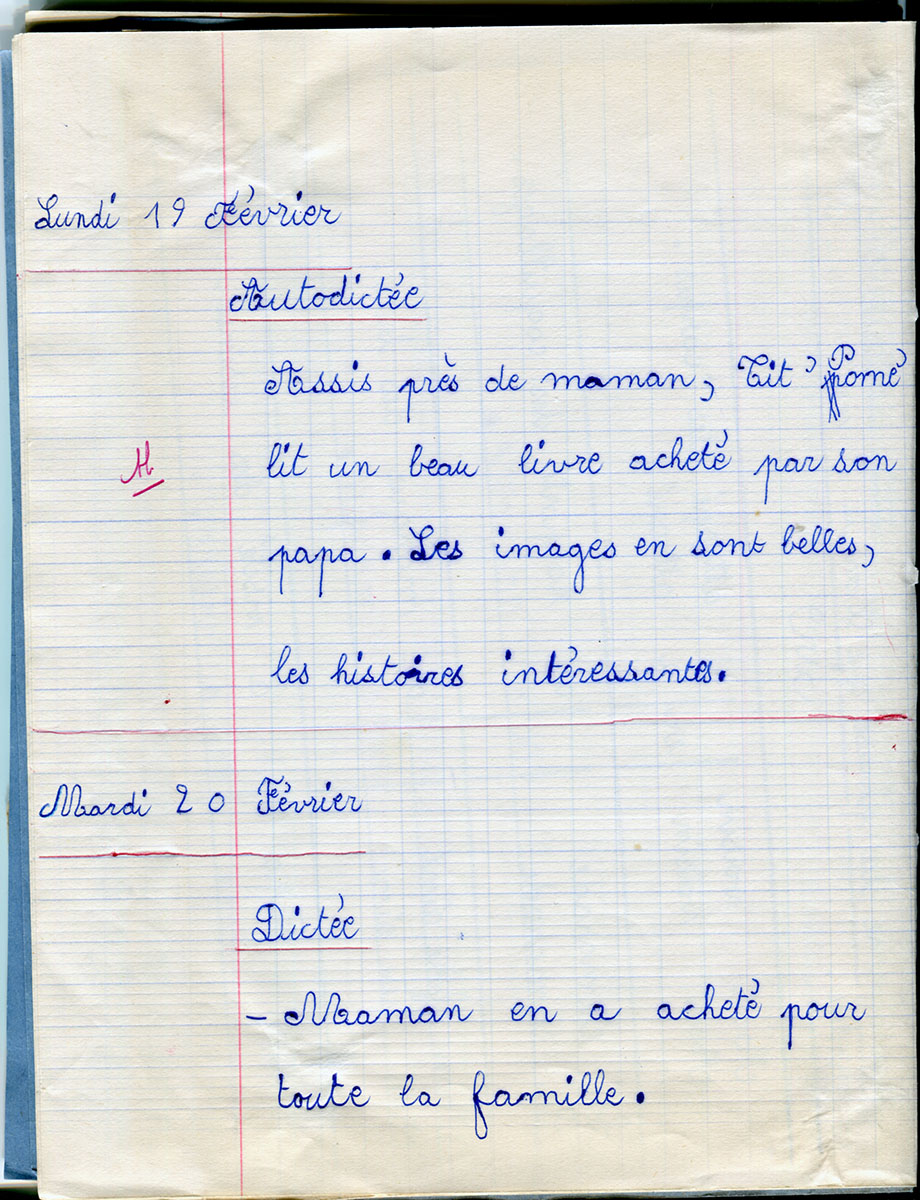 Lundi 19 Février
Autodictée
Assis près de maman, Tit' Pomé
lit un beau livre acheté par son
papa. Les images en sont belles,
les histoires intéressantes.
Mardi 20 Février
Dictée
- Maman en a acheté pour
toute la famille.